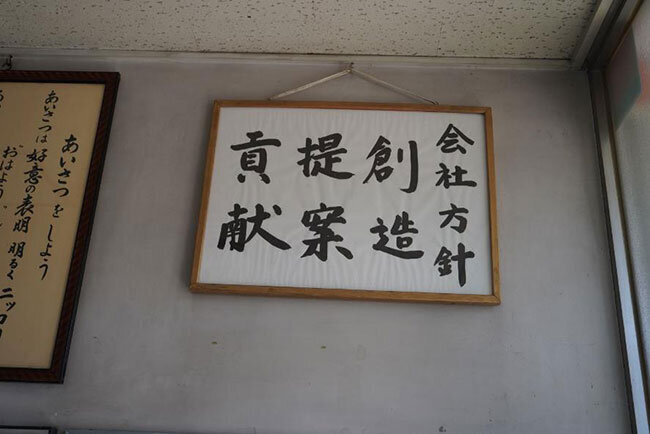 会社方針
創造
提案
貢献
あいさつをしよう
あいさつは好意の表明
おはよう
明るくニッコリ